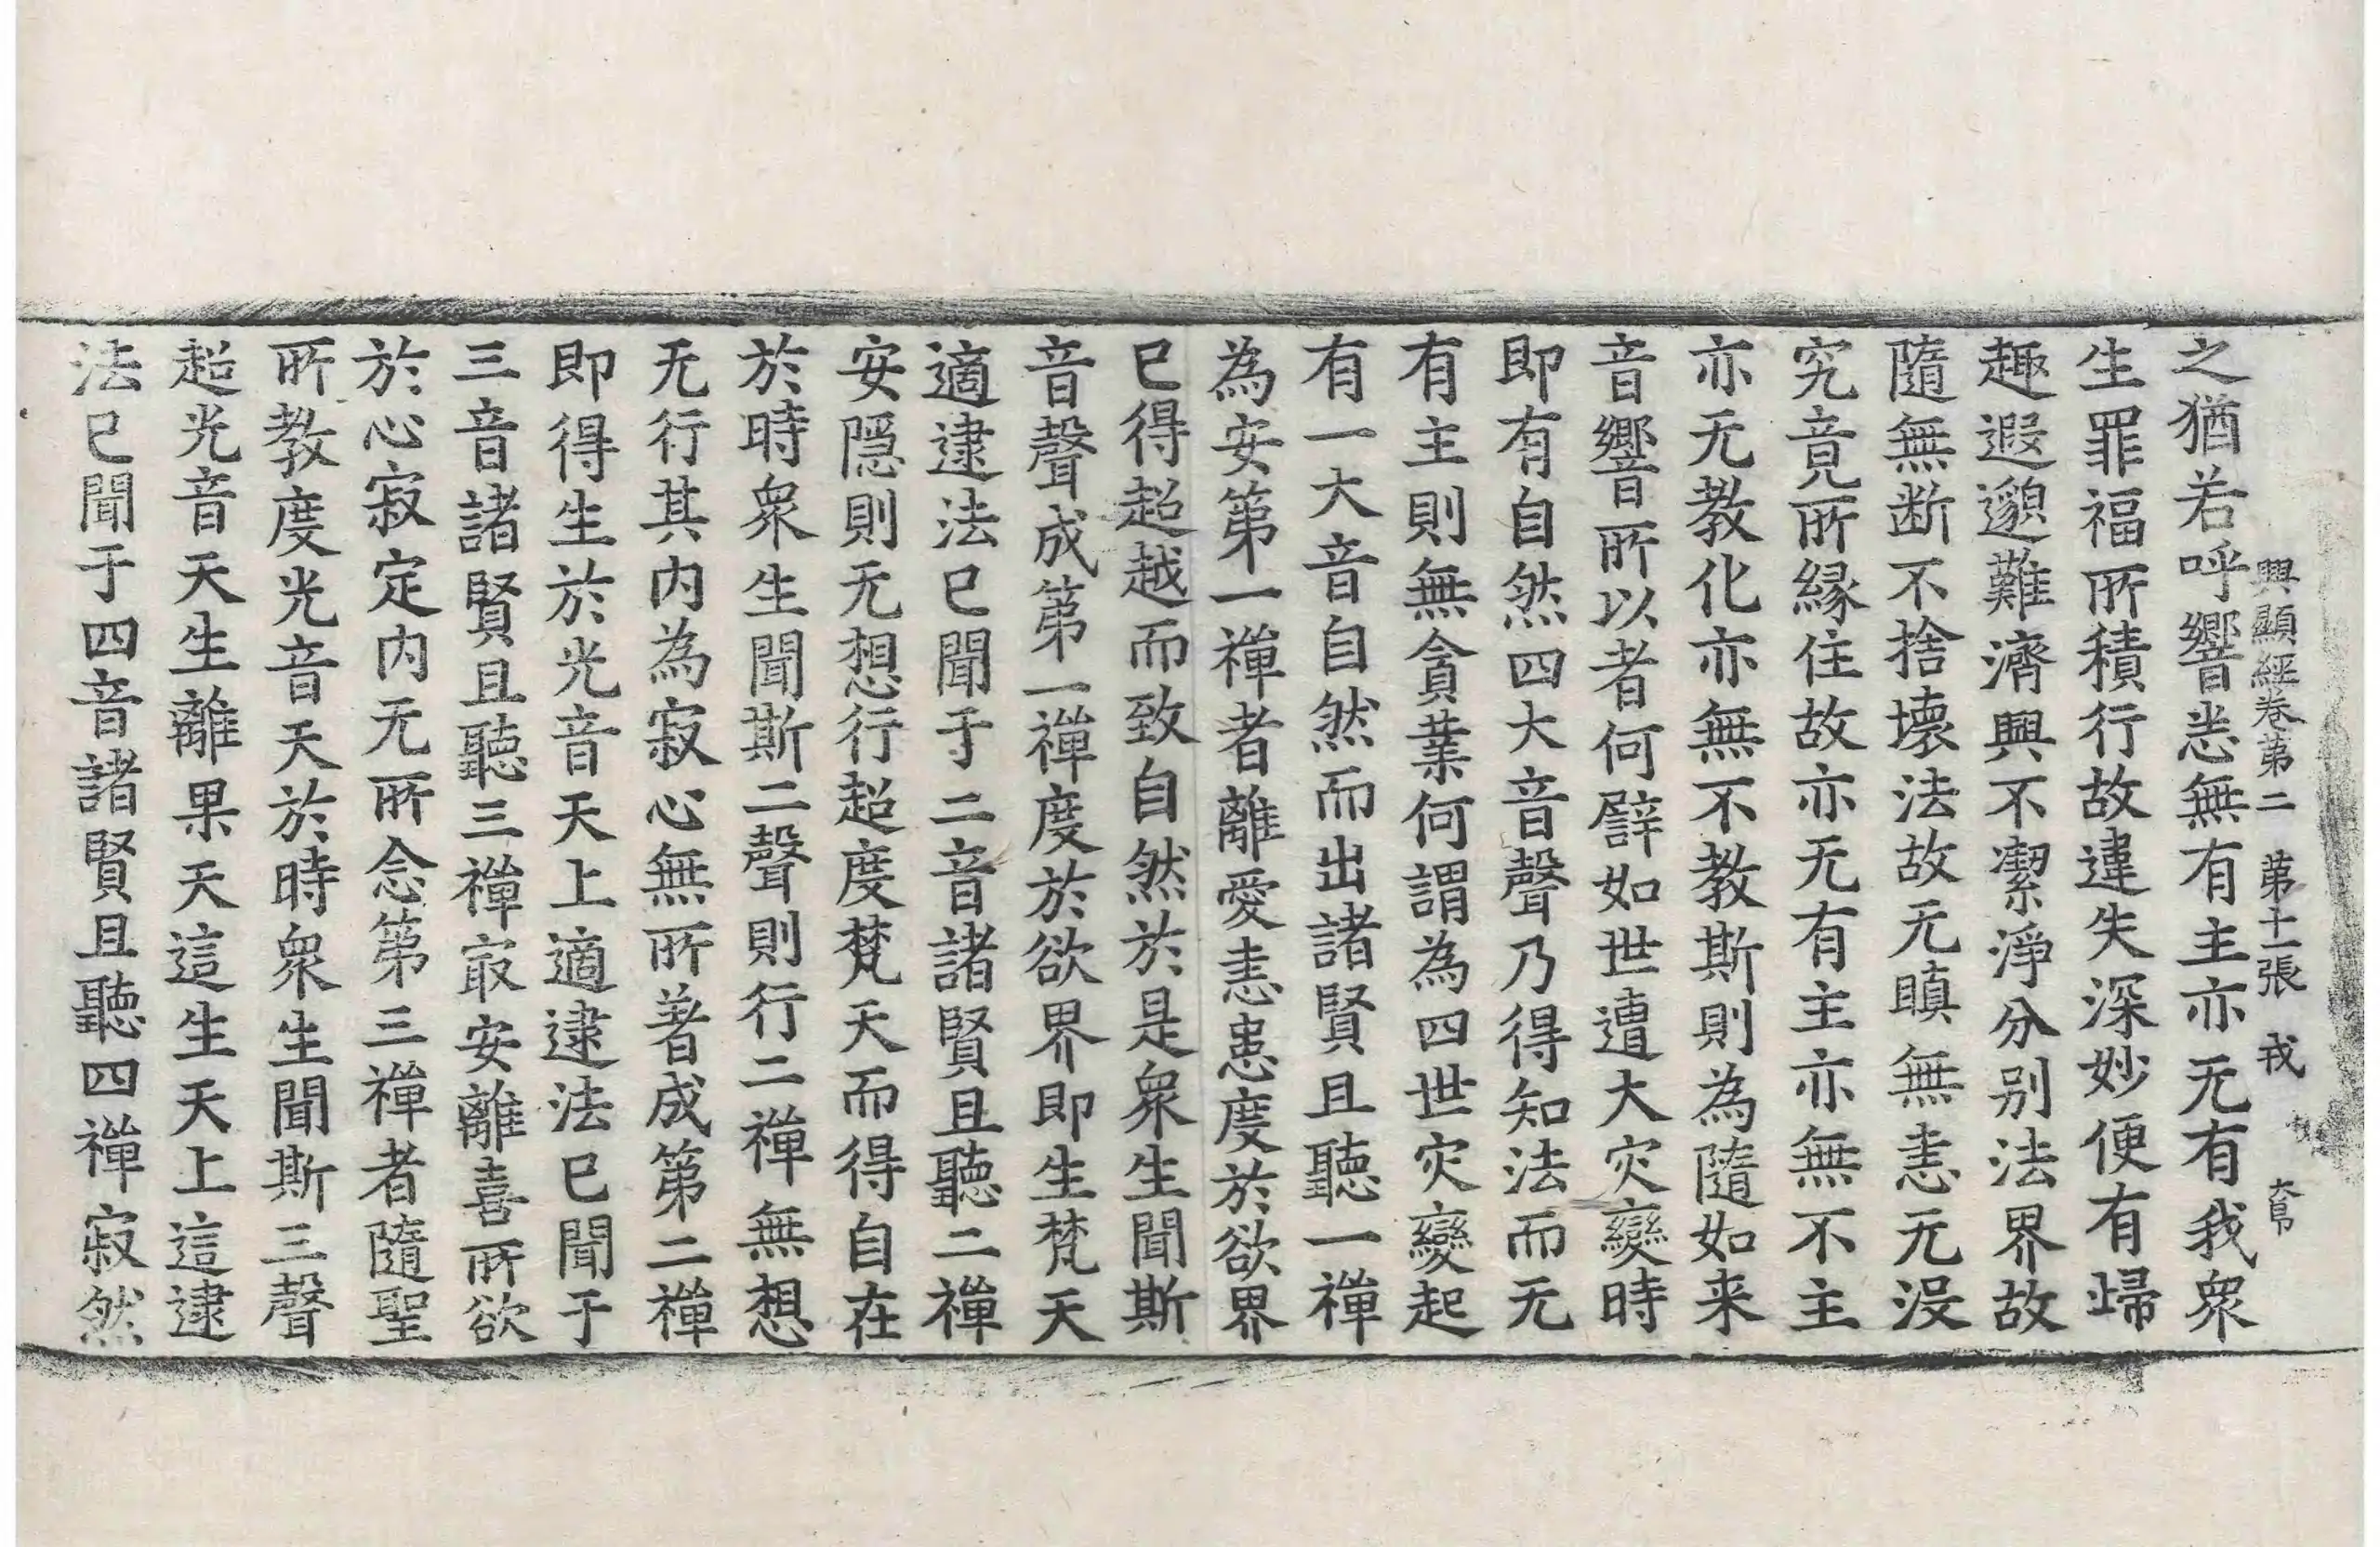 興顯經卷第二　第十一張　戎　大㠯
之猶若呼響悉無有主亦无有我衆
生罪福所積行故違失深妙便有歸
趣遐邈難濟興不潔淨分别法界故
隨無断不捨壞法故无瞋無恚无没
究竟所縁住故亦无有主亦無不主
亦无教化亦無不教斯則為隨如来
音響所以者何譬如世遭大灾變時
即有自然四大音聲乃得知法而无
有主則無貪業何謂為四世灾變起
有一大音自然而出諸賢且聽一禅
為安第一禅者離愛恚患度於欲界
已得超越而致自然於是衆生聞斯
音聲成第一禅度於欲界即生梵天
適逮法已聞于二音諸賢且聽二禅
安隠則无想行超度梵天而得自在
於時衆生聞斯二聲則行二禅無想
无行其内為寂心無所著成第二禅
即得生於光音天上適逮法已聞于
三音諸賢且聽三禅冣安離喜所欲
於心寂定内无所念第三禅者隨聖
所教度光音天於時衆生聞斯三聲
超光音天生離果天這生天上這逮
法已聞于四音諸賢且聽四禅寂然